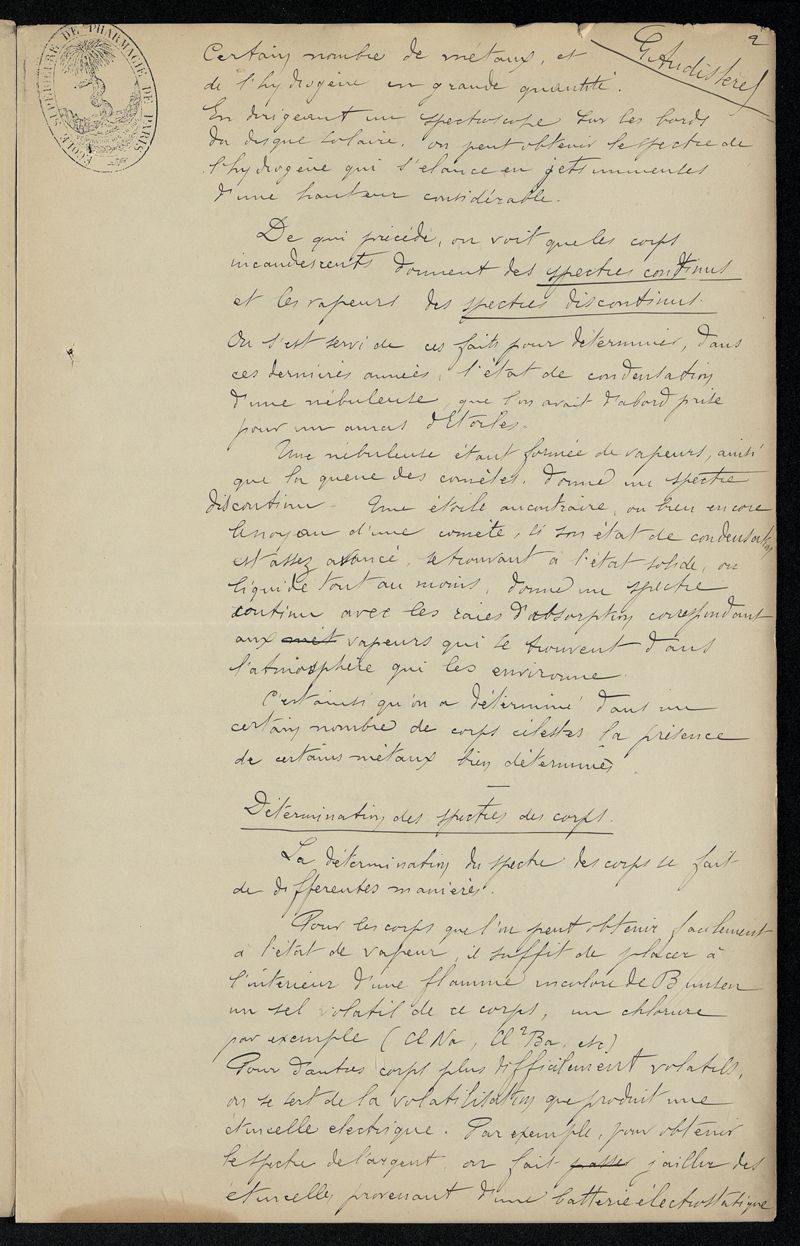 ÉCOLE SUPÉRIEURE DE PHARMACIE DE PARIS
2
certain nombre de métaux, et
de l'hydrogène en grande quantité.
En dirigeant un spectroscope sur les bords
du disque solaire, on peut obtenir le spectre de
l'hydrogène qui s'élance en jets immenses
d'une hauteur considérable.
De qui précède, on voit que les corps
incandescents donnent des spectres continus
et les vapeurs des spectres discontinus.
On s'est servi de ces faits pour déterminer, dans
ces dernières années, l'état de condensation
d'une nébuleuse, que l'on avait d'abord prise
pour un amas d'Etoiles.
Une nébuleuse étant formée de vapeurs, ainsi
que la queue des comètes, donne un spectre
discontinu. Une étoile au contraire, ou bien encore
le noyau d'une comète, si son état de condensation
est assez avancé, se trouvant à l'état solide, ou
liquide tout au moins, donne un spectre
continu avec les raies d'absorption correspondant
aux mét vapeurs qui se trouvent dans
l'atmosphère qui les environne.
C'est ainsi qu'on a déterminé dans un
certain nombre de corps célestes la présence
de certains métaux bien déterminés
Détermination des spectres des corps.
La détermination du spectre des corps se fait
de différentes manières.
Pour les corps que l'on peut obtenir facilement
à l'état de vapeur, il suffit de placer à
l'intérieur d'une flamme incolore de Bunsen
un sel volatil de ce corps, un chlorure
par exemple (Cl Na, Cl² Ba, etc)
Pour d'autres corps plus difficilement volatils,
on se sert de la volatilisation que produit une
étincelle électrique. Par exemple, pour obtenir
le spectre de l'argent, on fait passer jaillir des
étincelles provenant d'une batterie électrostatique